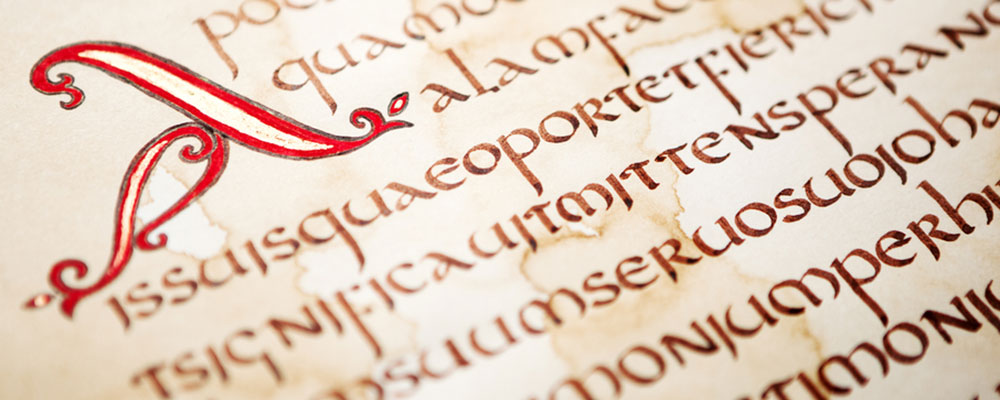 Apoc
quam
alamfac
issuisquaeoportetfieric
tsignificauitmittensperang
msuumseruosuoioha
moniumperhi
timoni